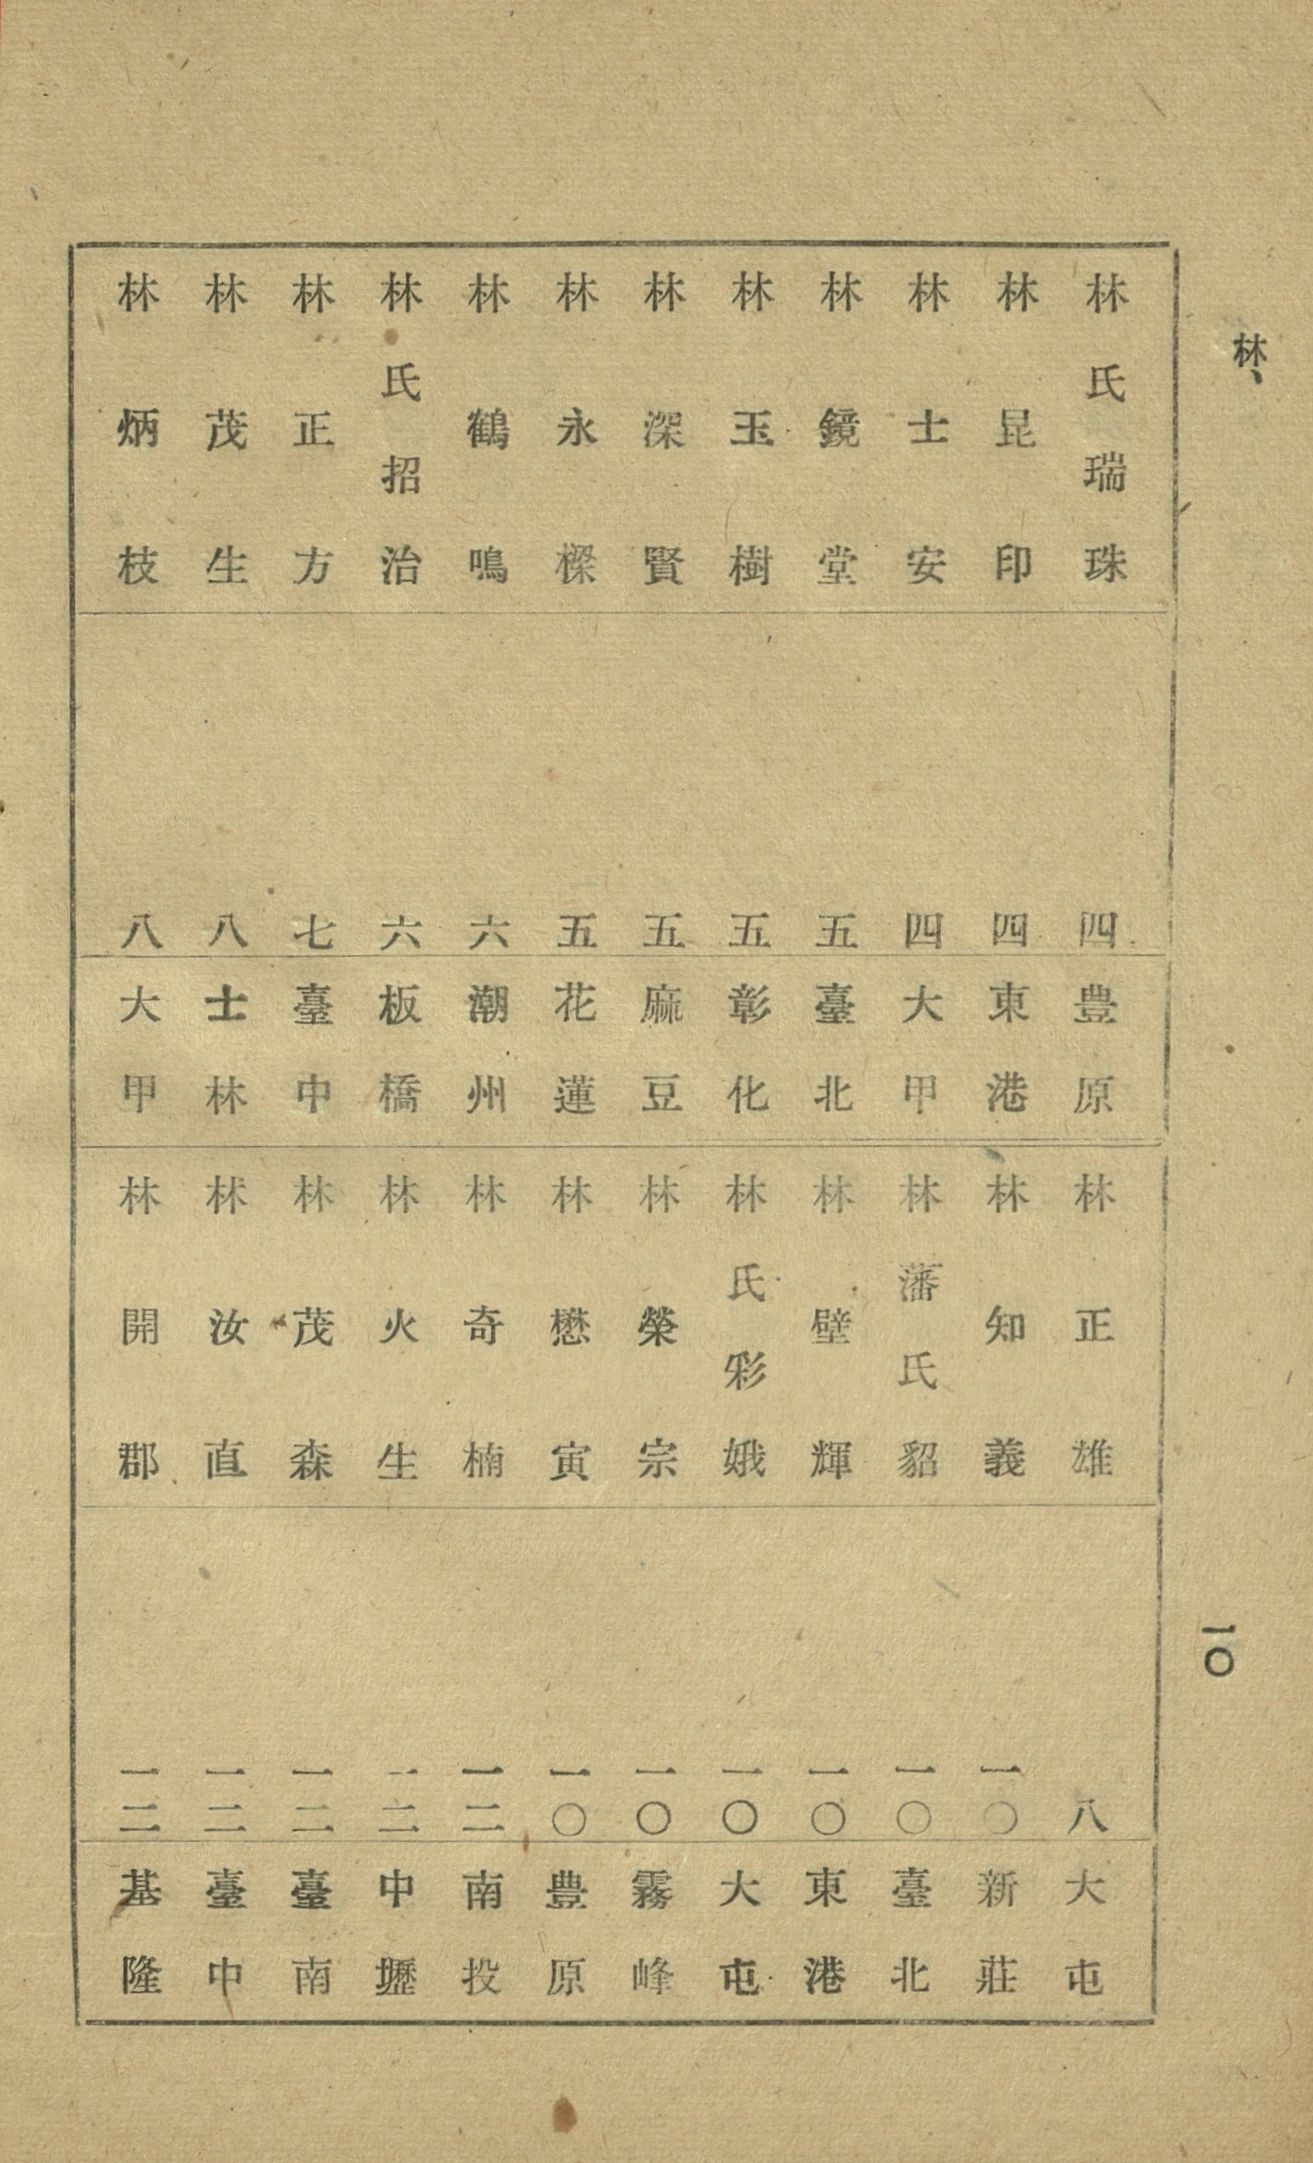 林、
林氏瑞珠 四 豊原
林昆印 四 東港
林士安 四 大甲
林鏡堂 五 臺北
林玉樹 五 彰化
林深賢 五 麻豆
林永樑 五 花蓮
林鶴鳴 六 潮州
林氏招治 六 板橋
林正方 七 臺中
林茂生 八 士林
林炳枝 八 大甲
林正雄 八 大屯
林知義 一〇 新莊
林藩氏貂 一〇 臺北
林壁輝 一〇 東港
林氏彩娥 一〇 大屯
林榮宗 一〇 霧峰
林懋寅 一〇 豊原
林奇楠 一二 南投
林火生 一二 中壢
林茂森 一二 臺南
林汝直 一二 臺中
林開郡 一二 基隆
一〇